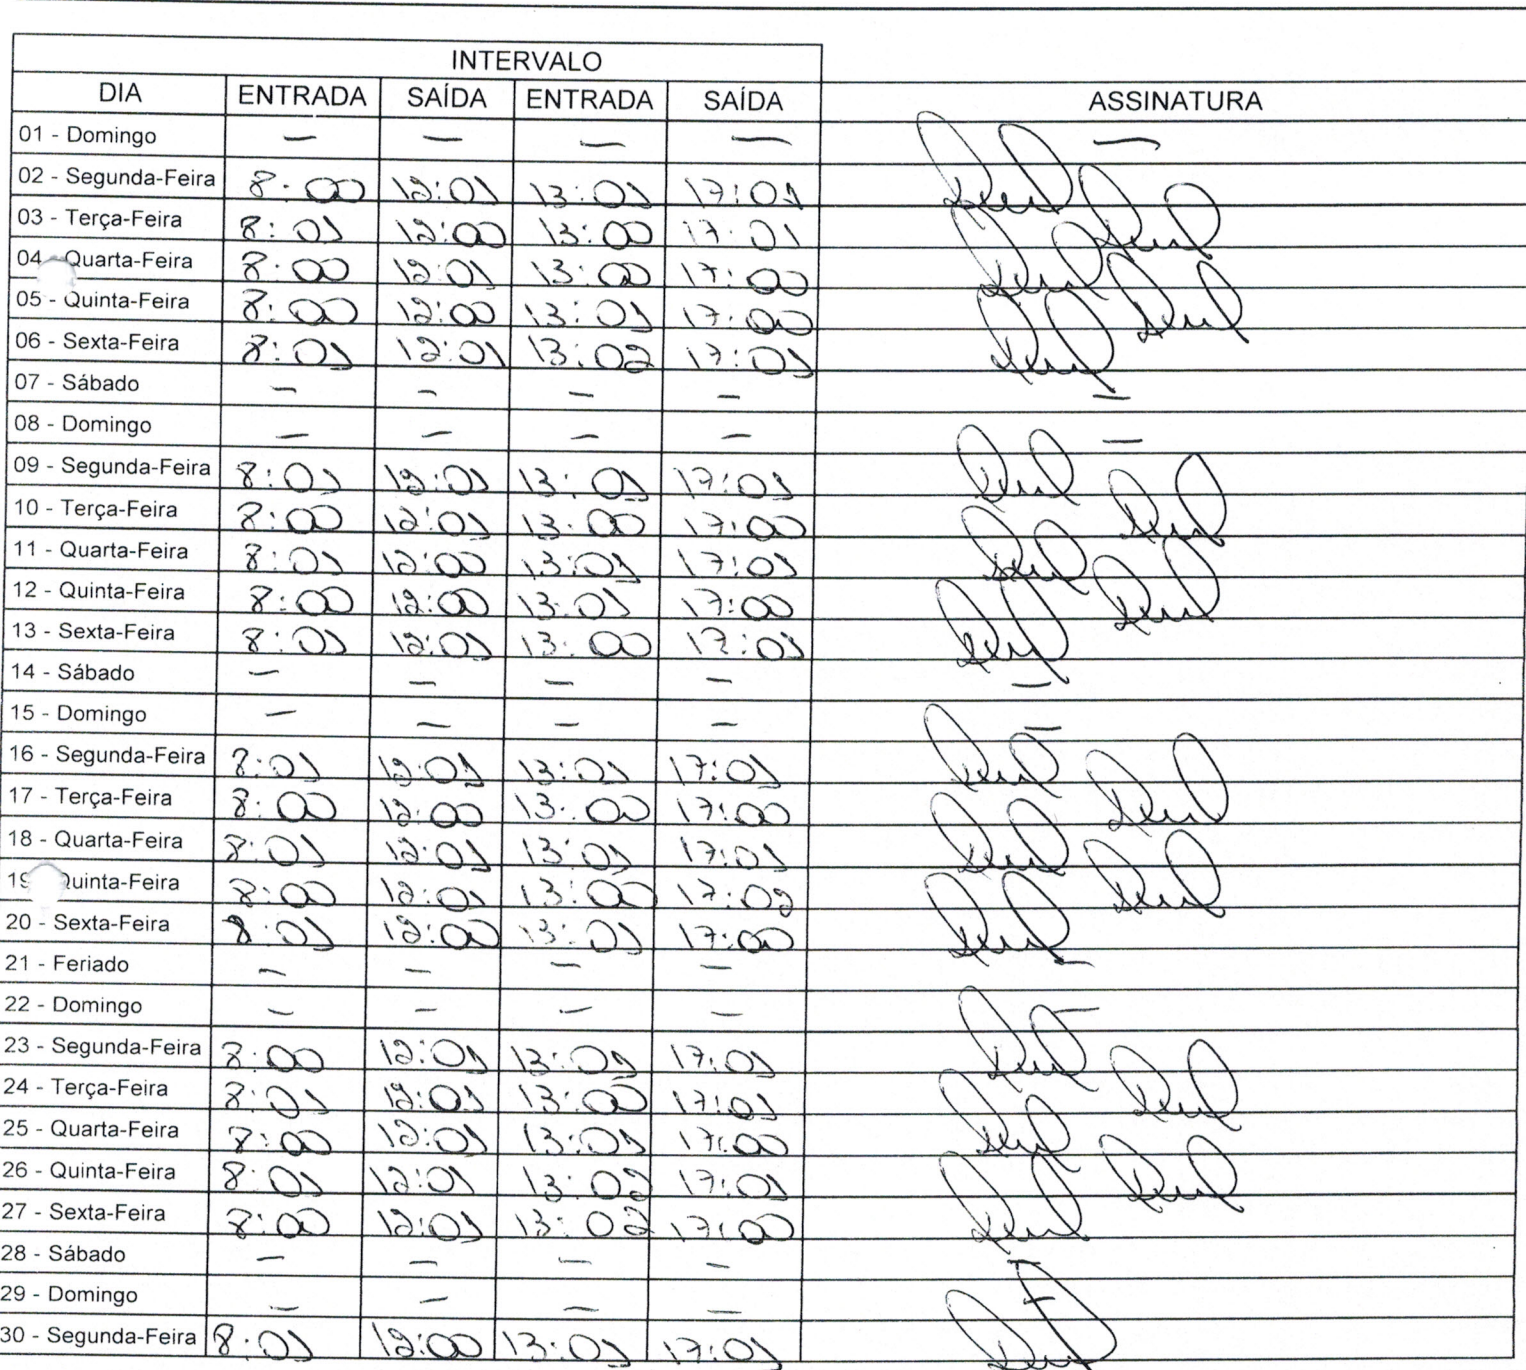 INTERVALO
DIA ENTRADA SAÍDA ENTRADA SAÍDA ASSINATURA
01 - Domingo — — — — —
02 - Segunda-Feira 8:00 12:01 13:01 17:01
03 - Terça-Feira 8:01 12:00 13:00 17:01
04 - Quarta-Feira 8:00 12:01 13:00 17:00
05 - Quinta-Feira 8:00 12:00 13:01 17:00
06 - Sexta-Feira 8:01 12:01 13:02 17:01
07 - Sábado — — — — —
08 - Domingo — — — — —
09 - Segunda-Feira 8:01 12:01 13:01 17:01
10 - Terça-Feira 8:00 12:01 13:00 17:00
11 - Quarta-Feira 8:01 12:00 13:01 17:01
12 - Quinta-Feira 8:00 12:00 13:01 17:00
13 - Sexta-Feira 8:01 12:01 13:00 17:01
14 - Sábado — — — — —
15 - Domingo — — — — —
16 - Segunda-Feira 8:01 12:01 13:01 17:01
17 - Terça-Feira 8:00 12:00 13:00 17:00
18 - Quarta-Feira 8:01 12:01 13:01 17:01
19 Quinta-Feira 8:00 12:01 13:00 17:02
20 - Sexta-Feira 8:01 12:00 13:01 17:00
21 - Feriado — — — — —
22 - Domingo — — — — —
23 - Segunda-Feira 8:00 12:01 13:01 17:01
24 - Terça-Feira 8:01 12:01 13:00 17:01
25 - Quarta-Feira 8:00 12:01 13:01 17:00
26 - Quinta-Feira 8:01 12:01 13:02 17:01
27 - Sexta-Feira 8:00 12:01 13:02 17:00
28 - Sábado — — — — —
29 - Domingo — — — — —
30 - Segunda-Feira 8:01 12:00 13:01 17:01